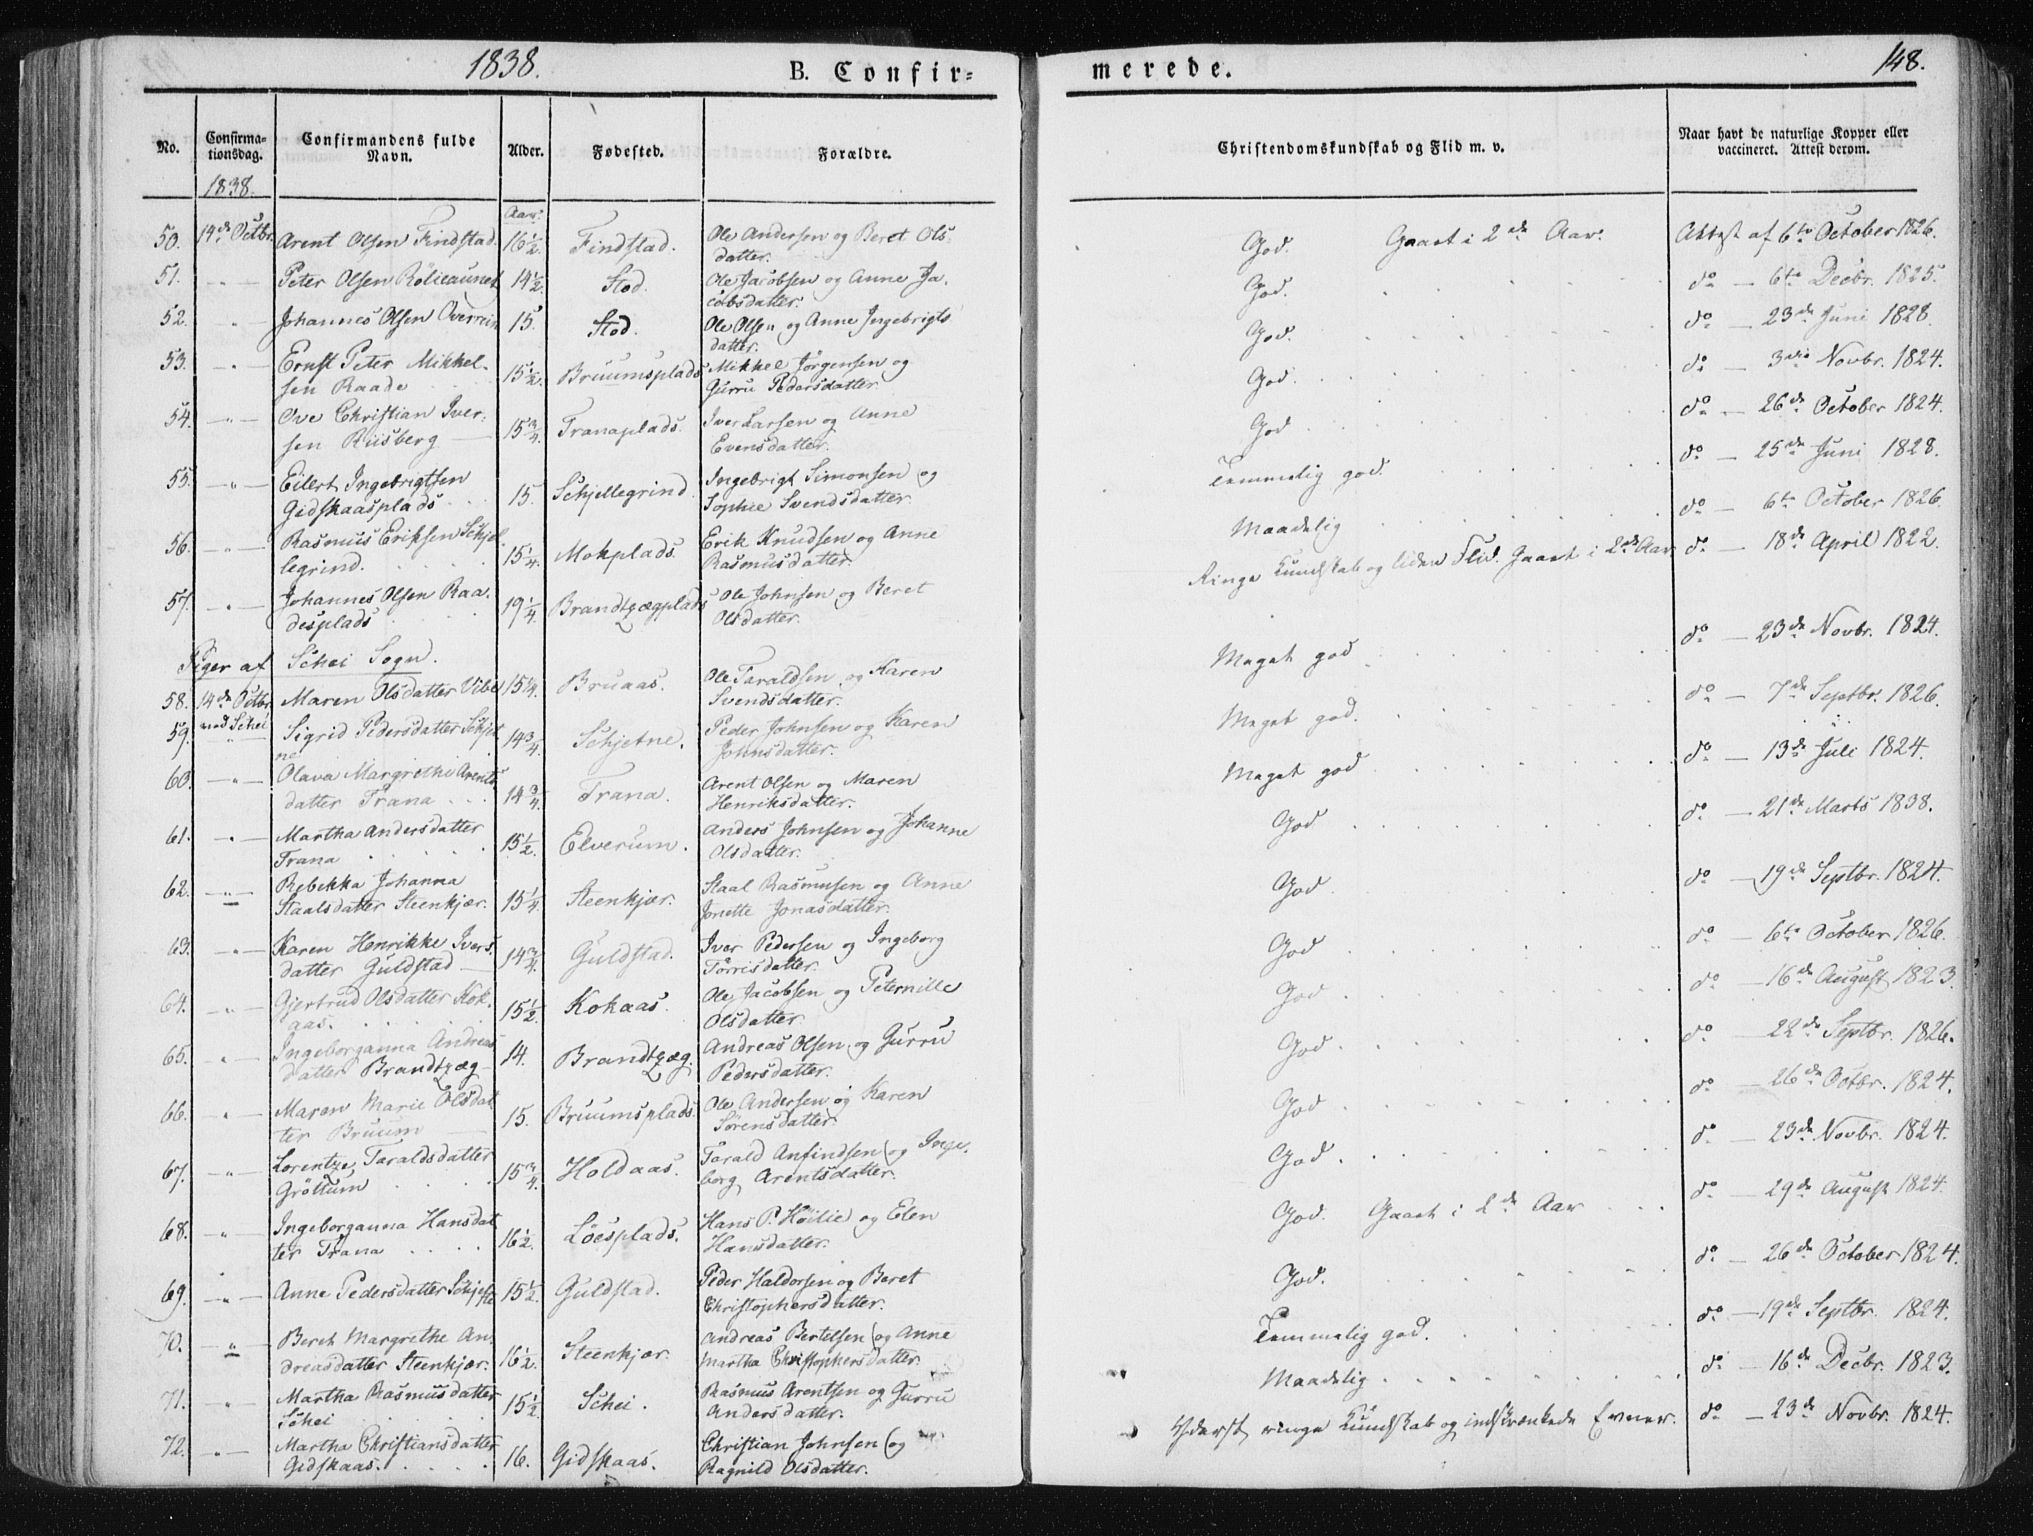 1838.
B. Confir=
merede.
148.
No.
Confirma-
tionsdag.
Confirmandens fulde
Navn.
Alder.
Fødested.
Forældre.
Christendomskundskab og Flid m. v.
Naar havt de naturlige Kopper eller
vaccineret. Attest derom.
1838.
Aar.
50. 14de Octbr. Arent Olsen Findstad. 16½ Findstad. Ole Andersen og Beret Ols-
datter. God. Gaaet i 2de Aar. Attest af 6te October 1826.
51. — " — Peter Olsen Rölieaunet 14½ Stod. Ole Jacobsen og Anne Ja-
cobsdatter. God. do — 6te Decbr. 1825.
52. — " — Johannes Olsen Overrein 15. Stod. Ole Olsen og Anne Ingebrigts
datter. God. do — 23de Juni 1828.
53. — " — Ernst Peter Mikkel-
sen Raade 15½ Bruumsplads Mikkel Jörgensen og
Gurru Pedersdatter God. do — 3die Novbr. 1824.
54. — " — Ove Christian Iver-
sen Riisberg 15¾ Tranaplads. Iver Larsen og Anne
Evensdatter. God do — 26de October 1824.
55. — " — Eilert Ingebrigtsen
Gidskaasplads 15. Schjellegrind Ingebrigt Simonsen og
Sophie Svendsdatter Temmelig god. do — 25de Juni 1828.
56. — " — Rasmus Eriksen Schjel-
legrind. 15¼ Mokplads. Erik Knudsen og Anne
Rasmusdatter. Maadelig do — 6te October 1826.
57. — " — Johannes Olsen Raa-
desplads 19¼ Brandtzægplads Ole Johnsen og Beret
Olsdatter. Ringe Kundskab og liden Flid. Gaaet i 2de Aar do — 18de April 1822.
Piger af Schei Sogn.
58. 14de Octbr. Maren Olsdatter Vibe 15¼ Bruaas. Ole Taraldsen og Karen
Svendsdatter. Meget god do — 23de Novbr. 1824.
ved Schei
59. — " — Sigrid Pedersdatter Schjet-
ne 14¾ Schjetne. Peder Johnsen og Karen
Johnsdatter. Meget god. do — 7de Septbr. 1826.
60. — " — Olava Margrethe Arents
datter Trana 14¾ Trana. Arent Olsen og Maren
Henriksdatter. Meget god do — 13de Juli 1824.
61. — " — Martha Andersdatter
Trana 15½ Elverum. Anders Johnsen og Johanne
Olsdatter. God do — 21de Marts 1838.
62. — " — Rebekka Johanna
Staalsdatter Steenkjær. 15¼ Steenkjær. Staal Rasmusen og Anne
Jonette Jonasdatter. God do — 19de Septbr. 1824.
63. — " — Karen Henrikke Ivers-
datter Guldstad 14¾ Guldstad. Iver Pedersen og Ingeborg
Törrisdatter. God do — 6te October 1826.
64. — " — Gjertrud Olsdatter Kok-
aas. 15½ Kokaas. Ole Jacobsen og Peternille
Olsdatter. God do — 16de August 1823.
65. — " — Ingeborganna Andreas
datter Brandtzæg 14. Brandtzæg. Andreas Olsen og Gurru
Pedersdatter. God do — 22de Septbr. 1826.
66. — " — Maren Marie Olsdat
ter Bruum 15. Bruumsplads Ole Andersen og Karen
Sörensdatter. God do — 26de Octbr. 1824.
67. — " — Lorentze Taraldsdatter
Gröttum 15¾ Holdaas. Tarald Anfindsen og Inge-
borg Arentsdatter. God do — 23de Novbr. 1824.
68. — " — Ingeborganna Hansdat
ter Trana 16½ Löesplads. Hans P. Höilie og Elen
Hansdatter. God. Gaaet i 2de Aar do — 29de August 1824.
69. — " — Anne Pedersdatter Schjefte 15½ Guldstad. Peder Haldorsen og Beret
Christophersdatter. God. do — 26de October 1824.
70. — " — Beret Margrethe An-
dreasdatter Steenkjær. 16½ Steenkjær. Andreas Bertelsen og Anne
Martha Christophersdatter. Temmelig god. do — 19de Septbr. 1824.
71. — " — Martha Rasmusdatter
Schei 15½ Schei. Rasmus Arentsen og Gurru
Andersdatter. Maadelig do — 16de Decbr. 1823.
72. — " — Martha Christiansdatter
Gidskaas. 16. Gidskaas. Christian Johnsen og
Ragnild Olsdatter. Yderst ringe Kundskab og indskrænkede Evner. do — 23de Novbr. 1824.